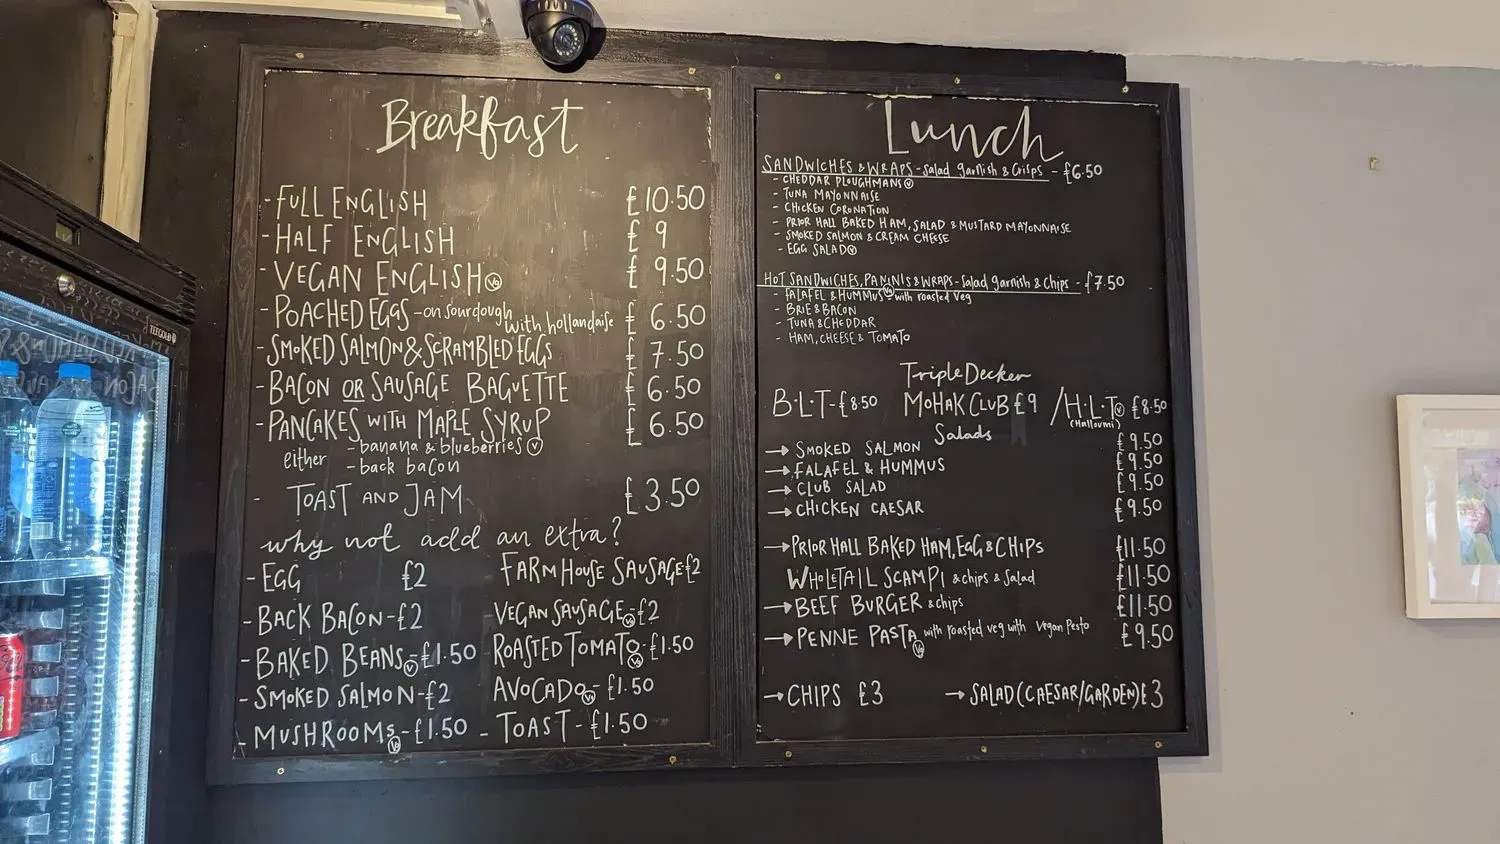 Breakfast
- FULL ENGLISH £10.50
- HALF ENGLISH £9
- VEGAN ENGLISH Vg £9.50
- POACHED EGGS - on sourdough with hollandaise £6.50
- SMOKED SALMON & SCRAMBLED EGGS £7.50
- BACON OR SAUSAGE BAGUETTE £6.50
- PANCAKES WITH MAPLE SYRUP £6.50
either - banana & blueberries V
- back bacon
- TOAST AND JAM £3.50
why not add an extra?
- EGG £2
FARMHOUSE SAUSAGE £2
- BACK BACON - £2
- VEGAN SAUSAGE Vg - £2
- BAKED BEANS V - £1.50
- ROASTED TOMATO Vg - £1.50
- SMOKED SALMON - £2
AVOCADO Vg - £1.50
- MUSHROOMS Vg - £1.50
- TOAST - £1.50
Lunch
SANDWICHES & WRAPS - salad garnish & crisps - £6.50
- CHEDDAR PLOUGHMANS V
- TUNA MAYONNAISE
- CHICKEN CORONATION
- PRIOR HALL BAKED HAM, SALAD & MUSTARD MAYONNAISE
- SMOKED SALMON & CREAM CHEESE
- EGG SALAD V
HOT SANDWICHES, PANINIS & WRAPS - salad garnish & chips - £7.50
- FALAFEL & HUMMUS Vg with roasted veg
- BRIE & BACON
- TUNA & CHEDDAR
- HAM, CHEESE & TOMATO
Triple Decker
B.L.T - £8.50 MOHAK CLUB £9 / H.L.T V £8.50
(Halloumi)
Salads
→ SMOKED SALMON £9.50
→ FALAFEL & HUMMUS £9.50
→ CLUB SALAD £9.50
→ CHICKEN CAESAR £9.50
→ PRIOR HALL BAKED HAM, EGG & CHIPS £11.50
WHOLETAIL SCAMPI & chips & salad £11.50
→ BEEF BURGER & chips £11.50
→ PENNE PASTA Vg with roasted veg with vegan pesto £9.50
→ CHIPS £3
→ SALAD (CAESAR/GARDEN) £3
TEFCOLD